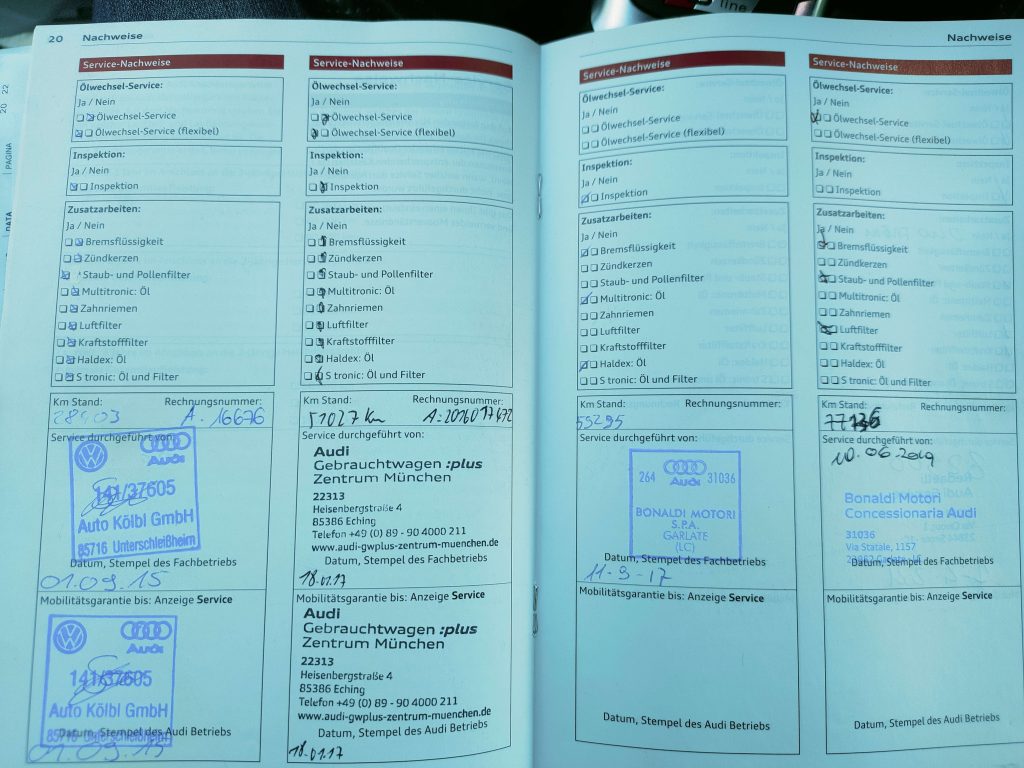 line
20 Nachweise
20 22
PAGINA
DATA
Service-Nachweise
Ölwechsel-Service:
Ja / Nein
Ölwechsel-Service
Ölwechsel-Service (flexibel)
Inspektion:
Ja / Nein
Inspektion
Zusatzarbeiten:
Ja / Nein
Bremsflüssigkeit
Zündkerzen
Staub- und Pollenfilter
Multitronic: Öl
Zahnriemen
Luftfilter
Kraftstofffilter
Haldex: Öl
S tronic: Öl und Filter
Km Stand: Rechnungsnummer:
A-16676
Service durchgeführt von:
Audi
141/37605
Auto Kölbl GmbH
85716 Unterschleißheim
Datum, Stempel des Fachbetriebs
01.09.15
Mobilitätsgarantie bis: Anzeige Service
Audi
141/37605
Auto Kölbl GmbH
85716 Unterschleißheim
Datum, Stempel des Audi Betriebs
01.09.15
Service-Nachweise
Ölwechsel-Service:
Ja / Nein
Ölwechsel-Service
Ölwechsel-Service (flexibel)
Inspektion:
Ja / Nein
Inspektion
Zusatzarbeiten:
Ja / Nein
Bremsflüssigkeit
Zündkerzen
Staub- und Pollenfilter
Multitronic: Öl
Zahnriemen
Luftfilter
Kraftstofffilter
Haldex: Öl
S tronic: Öl und Filter
Km Stand: Rechnungsnummer:
51027 Km
Service durchgeführt von:
Audi
Gebrauchtwagen :plus
Zentrum München
22313
Heisenbergstraße 4
85386 Eching
Telefon +49 (0) 89 - 90 4000 211
www.audi-gwplus-zentrum-muenchen.de
Datum, Stempel des Fachbetriebs
18.01.17
Mobilitätsgarantie bis: Anzeige Service
Audi
Gebrauchtwagen :plus
Zentrum München
22313
Heisenbergstraße 4
85386 Eching
Telefon +49 (0) 89 - 90 4000 211
www.audi-gwplus-zentrum-muenchen.de
Datum, Stempel des Audi Betriebs
18.01.17
Nachweise
Service-Nachweise
Ölwechsel-Service:
Ja / Nein
Ölwechsel-Service
Ölwechsel-Service (flexibel)
Inspektion:
Ja / Nein
Inspektion
Zusatzarbeiten:
Ja / Nein
Bremsflüssigkeit
Zündkerzen
Staub- und Pollenfilter
Multitronic: Öl
Zahnriemen
Luftfilter
Kraftstofffilter
Haldex: Öl
S tronic: Öl und Filter
Km Stand: Rechnungsnummer:
55295
Service durchgeführt von:
264 Audi 31036
BONALDI MOTORI
S.P.A.
GARLATE
(LC)
Datum, Stempel des Fachbetriebs
11-9-17
Mobilitätsgarantie bis: Anzeige Service
Datum, Stempel des Audi Betriebs
Service-Nachweise
Ölwechsel-Service:
Ja / Nein
Ölwechsel-Service
Ölwechsel-Service (flexibel)
Inspektion:
Ja / Nein
Inspektion
Zusatzarbeiten:
Ja / Nein
Bremsflüssigkeit
Zündkerzen
Staub- und Pollenfilter
Multitronic: Öl
Zahnriemen
Luftfilter
Kraftstofffilter
Haldex: Öl
S tronic: Öl und Filter
Km Stand: Rechnungsnummer:
Service durchgeführt von:
10.06.2019
Bonaldi Motori
Concessionaria Audi
31036
Via Statale, 1157
Datum, Stempel des Fachbetriebs
Mobilitätsgarantie bis: Anzeige Service
Datum, Stempel des Audi Betriebs